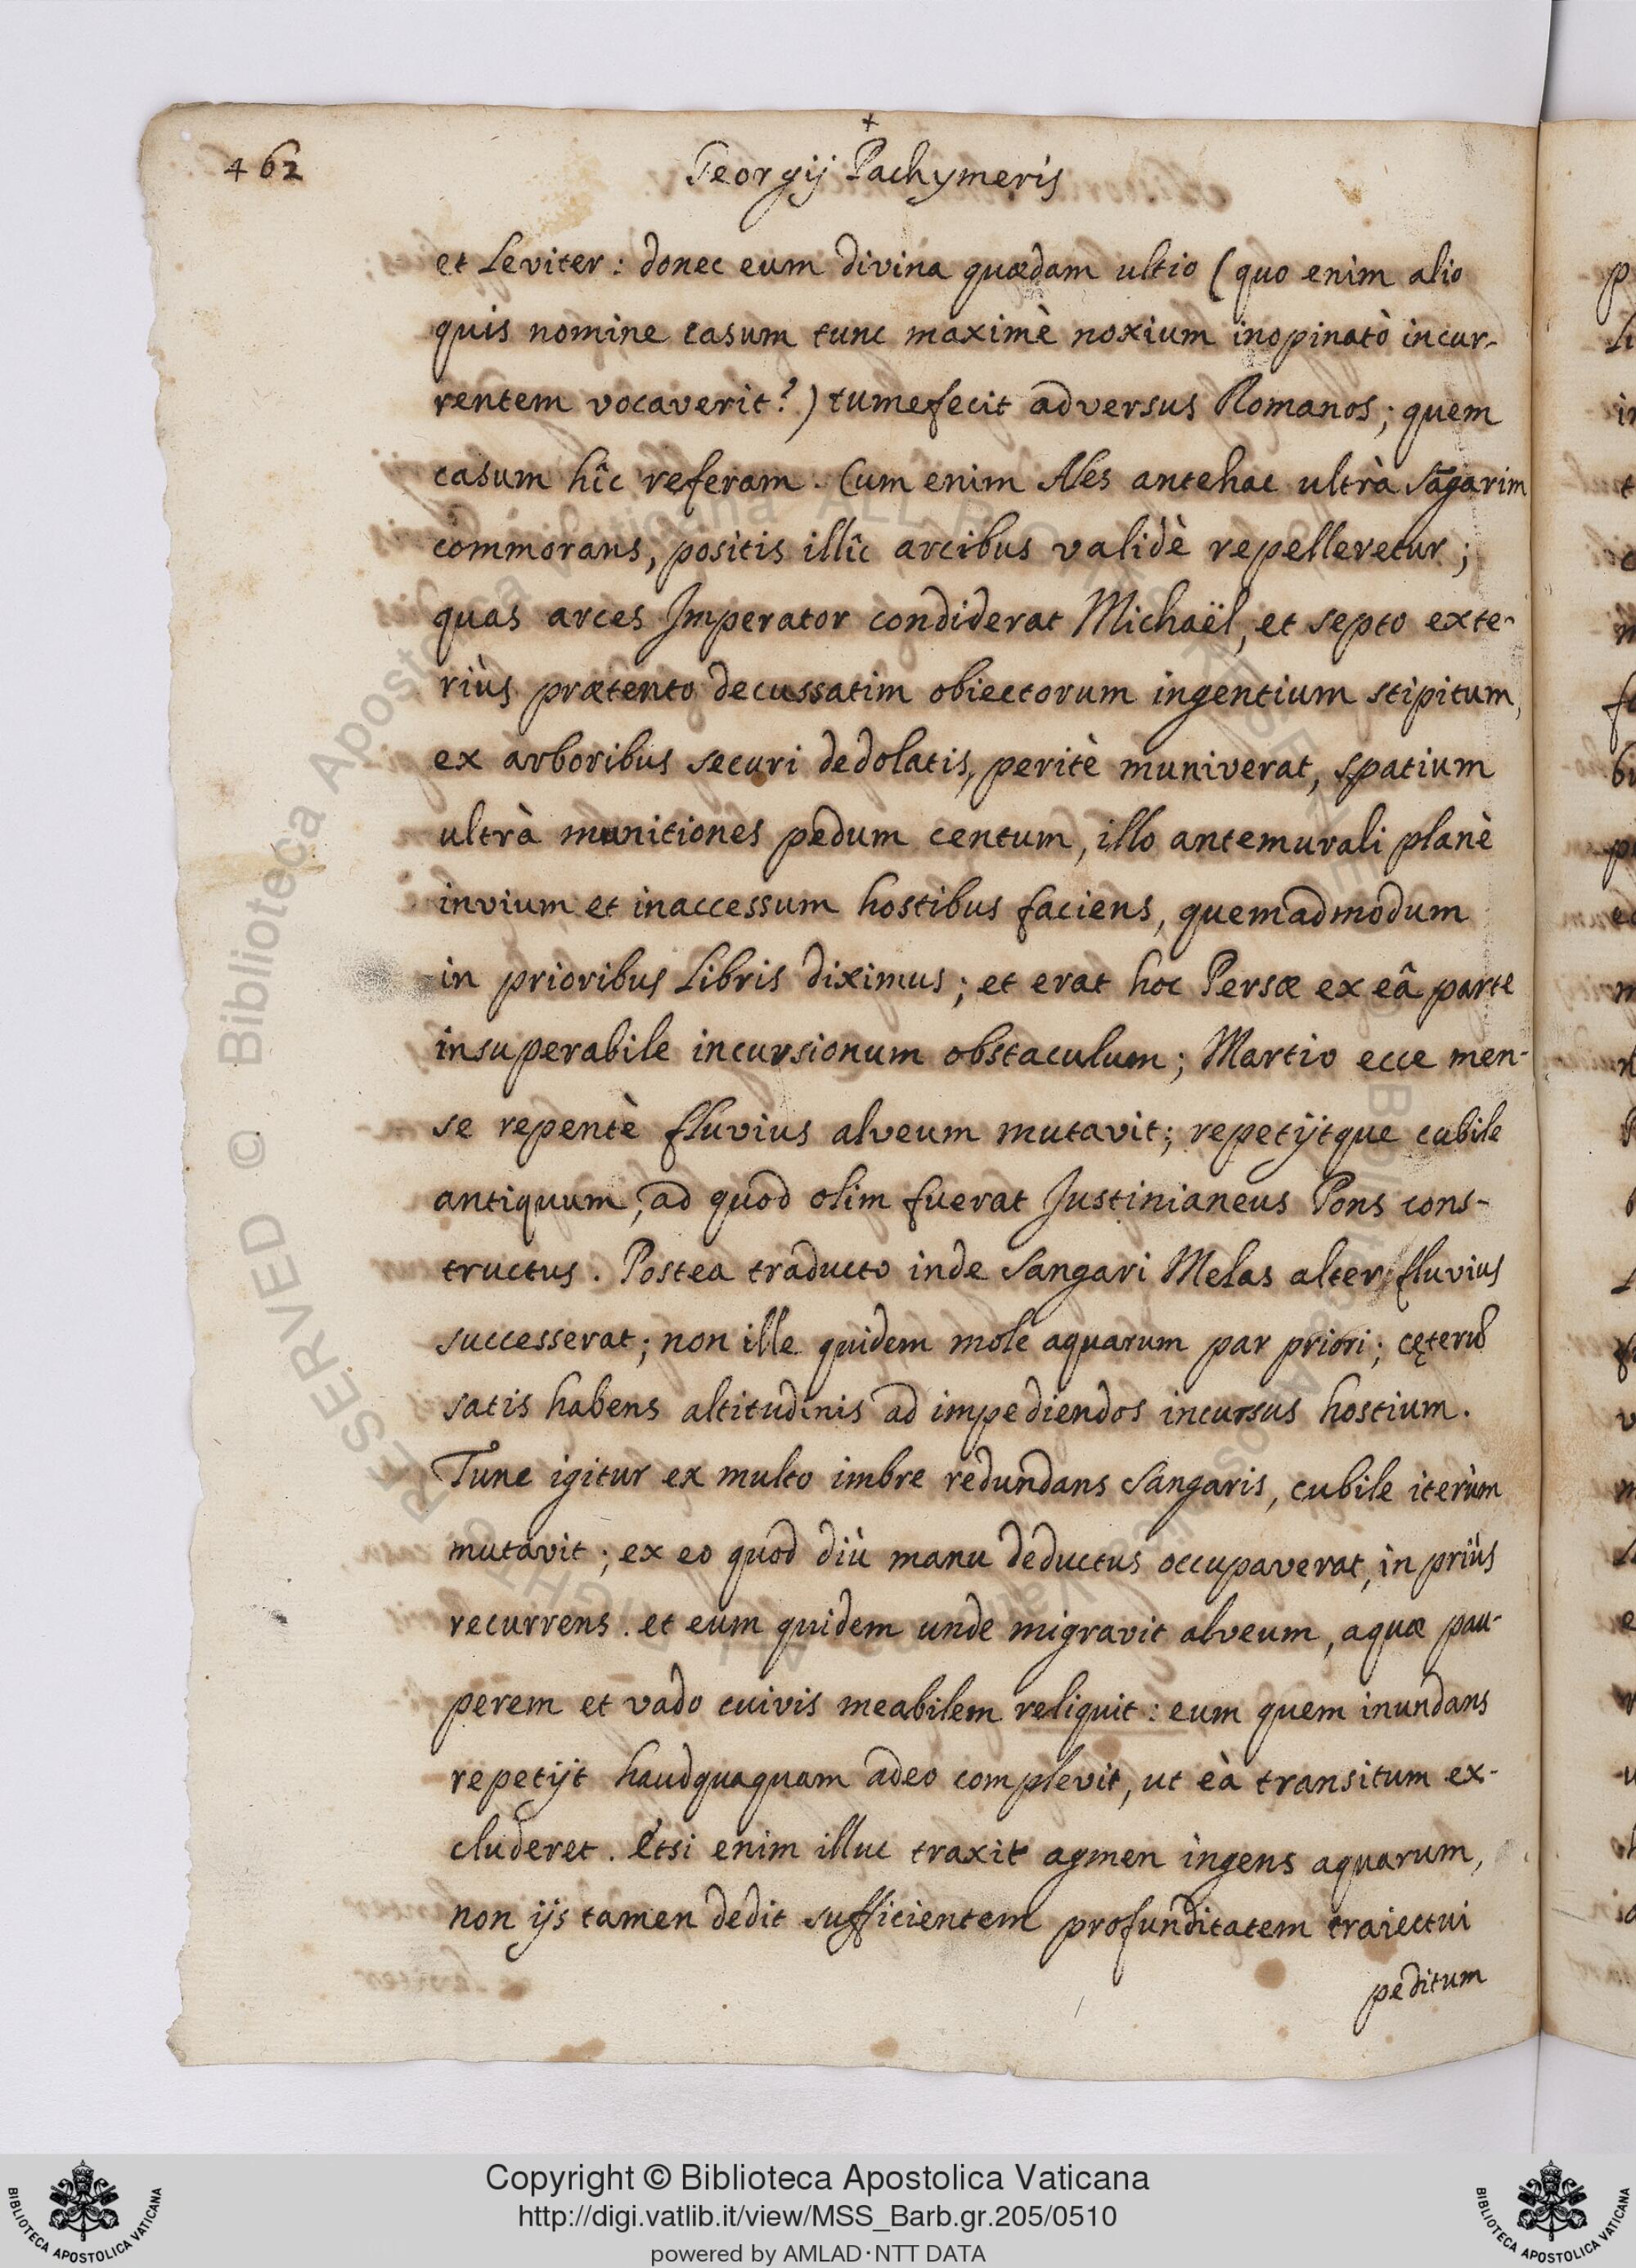 +
462 Georgij Pachymeris
et Leviter: donec eum divina quædam ultio (quo enim alio
quis nomine casum tunc maximè noxium inopinatò incur-
rentem vocaverit?) tumefecit adversus Romanos; quem
casum hîc referam. Cum enim Ales antehac ultrà Sāgarim
commorans, positis illîc arcibus validè repelleretur;
quas arces Imperator condiderat Michaël, et septo exte-
riùs prætento decussatim obiectorum ingentium stipitum,
ex arboribus securi dedolatis, peritè muniverat, spatium
ultrà munitiones pedum centum, illo antemurali planè
invium et inaccessum hostibus faciens, quemadmodum
in prioribus Libris diximus; et erat hoc Persæ ex eâ parte
insuperabile incursionum obstaculum; Martio ecce men-
se repentè fluvius alveum mutavit; repetijtque cubile
antiquum, ad quod olim fuerat Justinianeus Pons cons-
tructus. Postea traducto inde Sangari Melas alter fluvius
successerat; non ille quidem mole aquarum par priori; cęterũ
satis habens altitudinis ad impediendos incursus hostium.
Tunc igitur ex multo imbre redundans Sangaris, cubile iterùm
mutavit; ex eo quod diù manu deductus occupaverat, in priùs
recurrens. et eum quidem unde migravit alveum, aquæ pau-
perem et vado cuivis meabilem reliquit: eum quem inundans
repetijt haudquaquam adeo complevit, ut eà transitum ex-
cluderet. Etsi enim illuc traxit agmen ingens aquarum,
non ijs tamen dedit sufficientem profunditatem traiectui
peditum
Copyright © Biblioteca Apostolica Vaticana
http://digi.vatlib.it/view/MSS_Barb.gr.205/0510
powered by AMLAD·NTT DATA
BIBLIOTECA APOSTOLICA VATICANA
BIBLIOTECA APOSTOLICA VATICANA